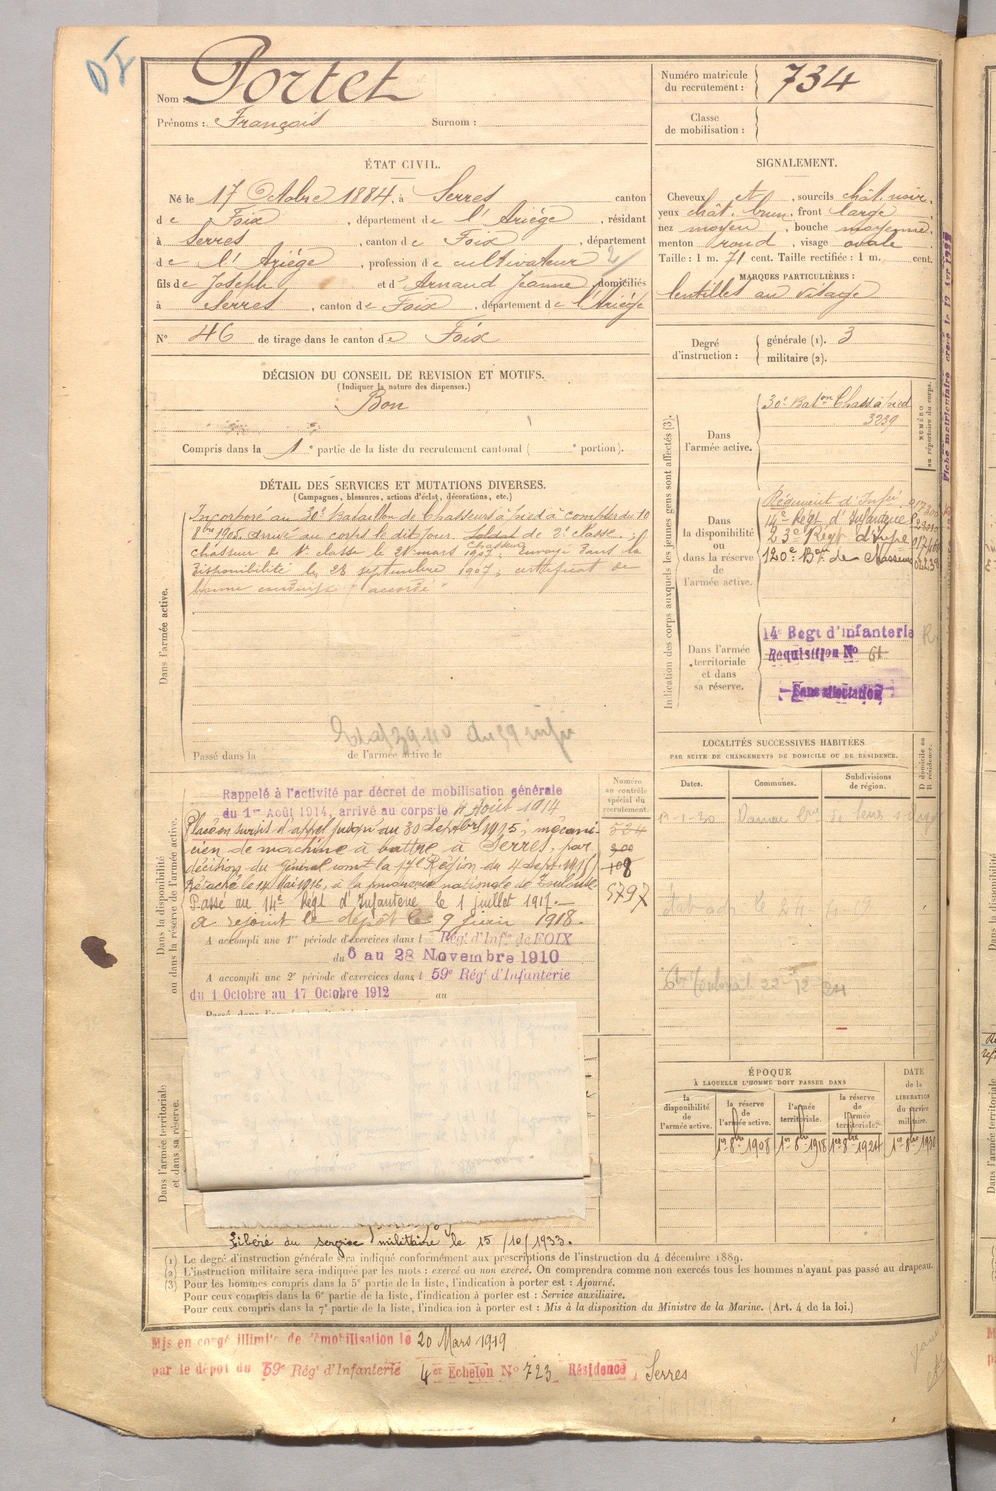 Nom : Portet
Prénoms : François Surnom :
Numéro matricule du recrutement : 734
Classe de mobilisation :
ÉTAT CIVIL.
Né le 17 Octobre 1884, à Serres canton
de Foix, département de l'Ariège, résidant
à Serres, canton de Foix, département
de l'Ariège, profession de cultivateur
fils de Joseph et d'Arnaud Jeanne domiciliés
à Serres, canton de Foix, département de l'Ariège
N° 46 de tirage dans le canton de Foix
SIGNALEMENT.
Cheveux et, sourcils chât. noir,
yeux chât. brun, front large
nez moyen, bouche moyenne,
menton rond, visage ovale
Taille : 1 m. 71 cent. Taille rectifiée : 1 m. cent.
MARQUES PARTICULIÈRES :
lentilles au visage
Degré d'instruction :
générale (1). 3
militaire (2).
DÉCISION DU CONSEIL DE REVISION ET MOTIFS.
(Indiquer la nature des dispenses.)
Bon
Compris dans la 1e partie de la liste du recrutement cantonal ( e portion).
DÉTAIL DES SERVICES ET MUTATIONS DIVERSES.
(Campagnes, blessures, actions d'éclat, décorations, etc.)
Dans l'armée active.
Incorporé au 30e Bataillon de Chasseurs à pied à compter du 10
8bre 1905 arrivé au corps le dit jour. Soldat de 2e classe.
Chasseur
chasseur de 1e classe le 28 mars 1907. Envoyé dans la
disponibilité le 28 septembre 1907, certificat de
bonne conduite "accordé"
Passé dans la de l'armée active le
Indication des corps auxquels les jeunes gens sont affectés (3).
NUMÉRO au répertoire du corps.
Dans l'armée active.
30e Baton Chass à pied
3239
Dans la disponibilité ou dans la réserve de l'armée active.
Régiment d'Infie
14e Régt d'Infanterie
23e Régt d'Infie
120e Bon de Chasseurs
Dans l'armée territoriale et dans sa réserve.
14e Regt d'Infanterie
Requisition N° 61
Sans affectation
Fiche matriculaire créée le
LOCALITÉS SUCCESSIVES HABITÉES
PAR SUITE DE CHANGEMENTS DE DOMICILE OU DE RÉSIDENCE.
Dates. Communes. Subdivisions de région. D domicile ou R résidence.
Dans la disponibilité ou dans la réserve de l'armée active.
Numéro au contrôle spécial du recrutement
Rappelé à l'activité par décret de mobilisation générale
du 1er Août 1914, arrivé au corps le 11 Août 1914
Placé en sursis d'appel jusqu'au 30 septbre 1915, mécani-
cien de machine à battre à Serres, par
décision du général comt la 17e Région du 4 Sept. 1915
Détaché le 14 Mai 1916, à la poudrerie nationale de Toulouse
Passé au 14e Régt d'Infanterie le 1 juillet 1917.
a rejoint le dépôt le 9 juin 1918.
108
5797
A accompli une 1re période d'exercices dans l Régt d'Infie de FOIX
du 6 au 28 Novembre 1910
A accompli une 2e période d'exercices dans l 59e Régt d'Infanterie
du 1 Octobre au 17 Octobre 1912 au
Dans l'armée territoriale et dans sa réserve.
Libéré du service militaire le 15/10/1933.
ÉPOQUE
À LAQUELLE L'HOMME DOIT PASSER DANS
la disponibilité de l'armée active. la réserve de l'armée active. l'armée territoriale. la réserve de l'armée territoriale. DATE de la LIBÉRATION du service militaire.
1er 8bre 1908 1er 8bre 1918 1er 8bre 1924 1er 8bre 1930
(1) Le degré d'instruction générale sera indiqué conformément aux prescriptions de l'instruction du 4 décembre 1889.
(2) L'instruction militaire sera indiquée par les mots : exercé ou non exercé. On comprendra comme non exercés tous les hommes n'ayant pas passé au drapeau.
(3) Pour les hommes compris dans la 5e partie de la liste, l'indication à porter est : Ajourné.
Pour ceux compris dans la 6e partie de la liste, l'indication à porter est : Service auxiliaire.
Pour ceux compris dans la 7e partie de la liste, l'indication à porter est : Mis à la disposition du Ministre de la Marine. (Art. 4 de la loi.)
Mis en congé illimité de démobilisation le 20 Mars 1919
par le dépôt du 59e Régt d'Infanterie 4e Echelon N° 723 Résidence, Serres